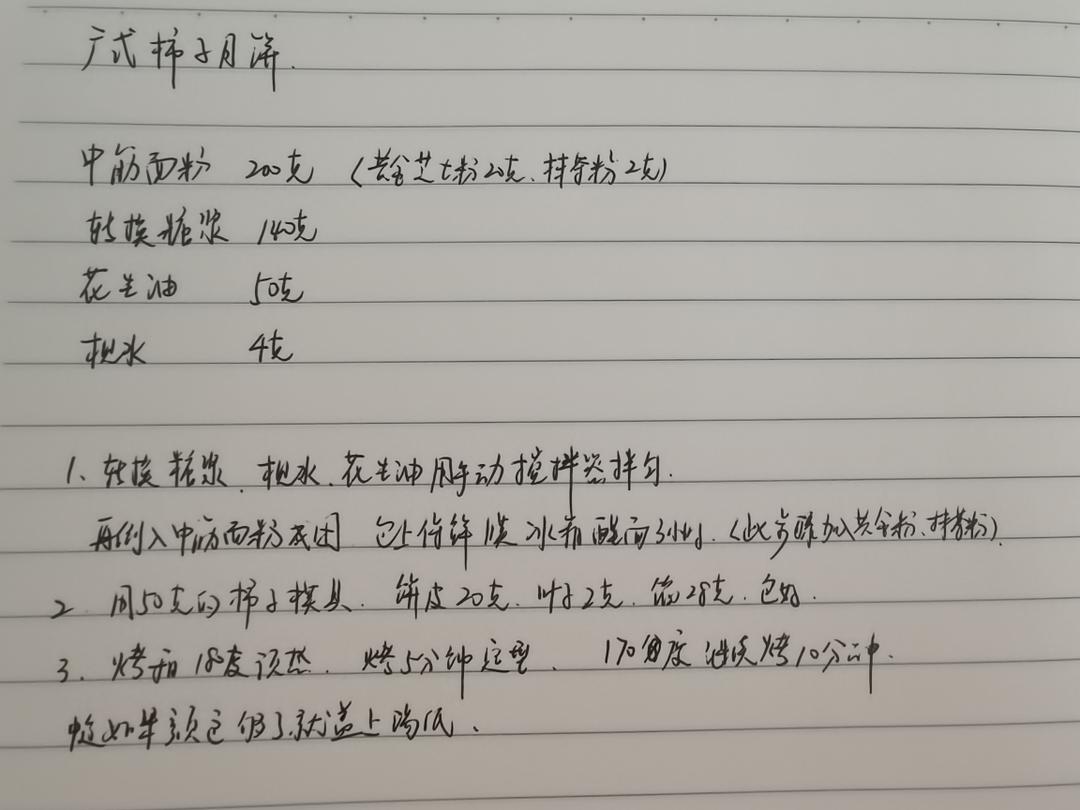 广式柿子月饼.
中筋面粉 200克 (黄金芝士粉20克、抹茶粉2克)
转换糖浆 140克
花生油 50克
枧水 4克
1、转换糖浆、枧水、花生油用手动搅拌器拌匀.
再倒入中筋面粉成团 包上保鲜膜 冰箱醒面3小时. (此步骤加入黄金粉、抹茶粉)
2 用50克的柿子模具. 饼皮20克. 叶子2克. 馅28克. 包好.
3. 烤箱 180度预热. 烤5分钟定型. 170度 继续烤10分钟.
如果颜色够了就盖上锡纸.